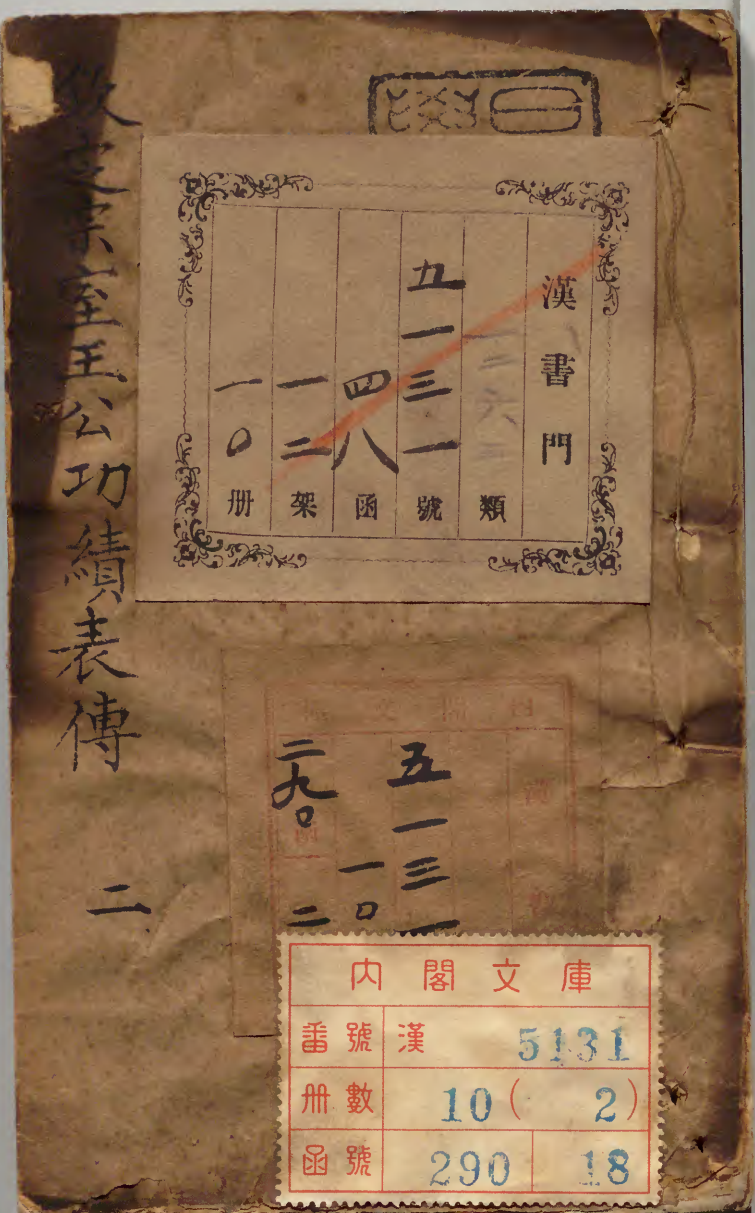 欽定宗室王公功績表傳 二
漢書門
類
五一三一號
四八函
一二架
一〇册
五一三一
一〇
二九〇
二
内閣文庫
番號 漢 5131
冊數 10(2)
函號 290 18